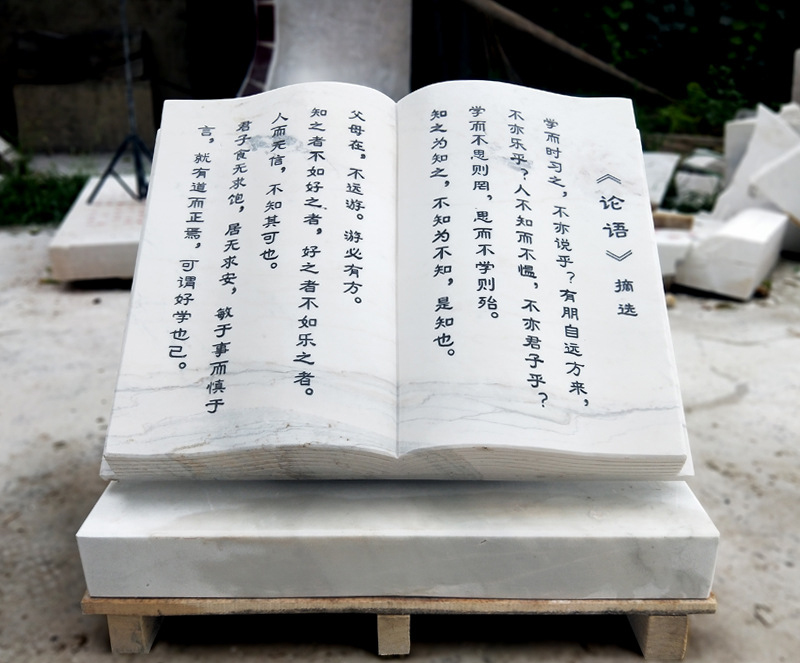 《论语》摘选
学而时习之，不亦说乎？有朋自远方来，
不亦乐乎？人不知而不愠，不亦君子乎？
学而不思则罔，思而不学则殆。
知之为知之，不知为不知，是知也。
父母在，不远游。游必有方。
知之者不如好之者，好之者不如乐之者。
人而无信，不知其可也。
君子食无求饱，居无求安，敏于事而慎于
言，就有道而正焉，可谓好学也已。